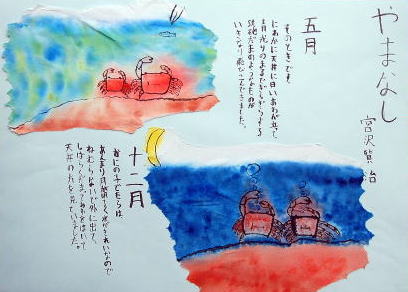 やまなし
宮沢賢治
五月
そのときです。
にわかに天井に白いあわが立って
青光りのまるでぎらぎらする
鉄砲だまのようなものが
いきなり飛びこんできました。
十二月
かにの子どもらは、
あんまり月が明るく水がきれいなので
ねむらないで外に出て、
しばらくだまってあわをはいて
天井の方を見ていました。